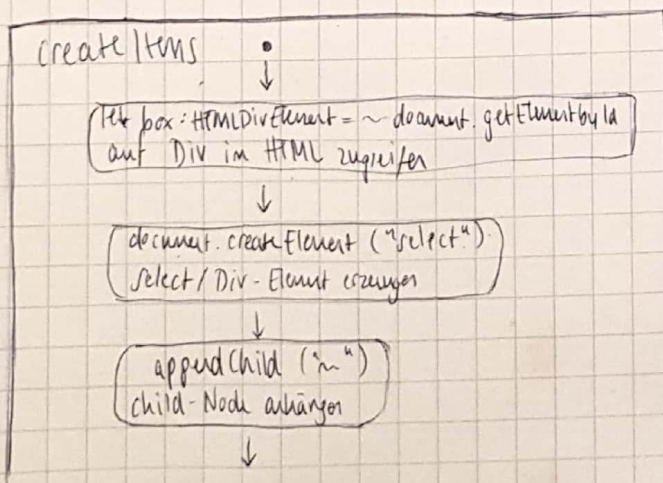 createItems
let box: HTMLDivElement = ~ document.getElementbyId
auf Div im HTML zugreifen
document.createElement ("select")
select / Div-Element erzeugen
appendChild ("~")
child-Node anhängen